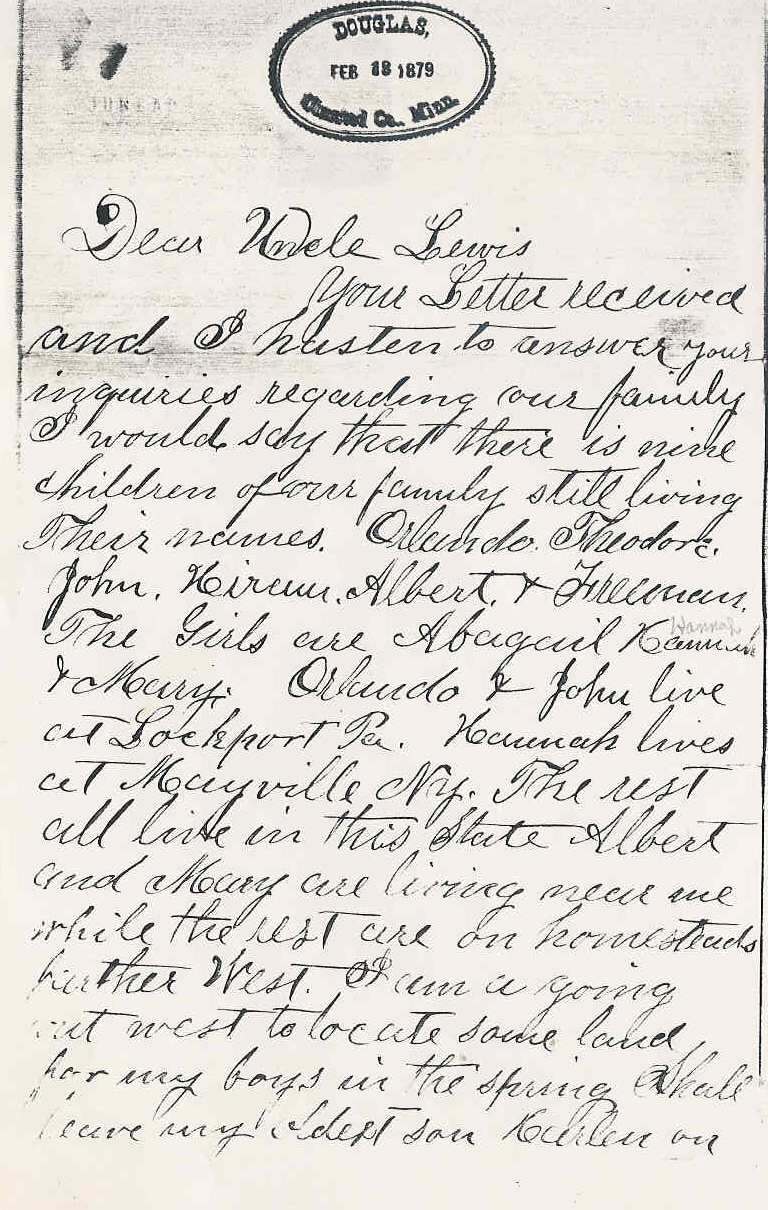 DOUGLAS,
FEB 18 1879
Olmsted Co., Minn.
Dear Uncle Lewis
Your Letter received
and I hasten to answer your
inquiries regarding our family
I would say that there is nine
children of our family still living
Their names. Orlando. Theodore.
John. Hiram. Albert. & Freeman.
The Girls are Abagail Hannah
Hannah
& Mary. Orlando & John live
at Lockport Pa. Hannah lives
at Mayville Ny. The rest
all live in this State Albert
and Mary are living near me
while the rest are on homesteads
farther West. I am a going
out west to locate some land
for my boys in the spring Shall
leave my oldest son Harlen on